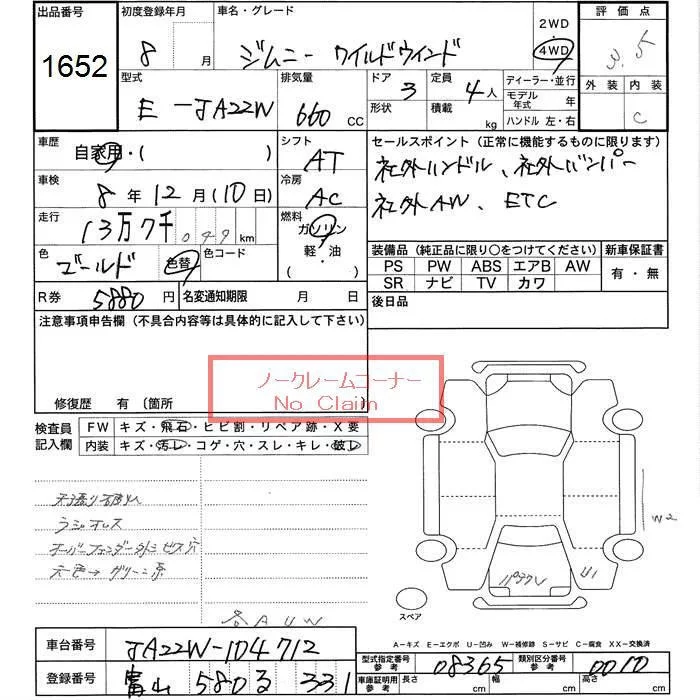 出品番号 1652
初度登録年月 8 月
車名・グレード ジムニー ワイルドウインド
2WD 4WD
評価点 3.5
外装 内装 C
型式 E-JA22W
排気量 660 CC
ドア形状 3
定員積載 4人 kg
ディーラー・並行
モデル年式 年
ハンドル 左・右
車歴 自家用・( )
シフト AT
車検 8年12月(10日)
冷房 AC
走行 13万7千049km
燃料 ガソリン 軽・油 ( )
色 ゴールド 色替 色コード
R券 5880円 名変通知期限 月 日
セールスポイント(正常に機能するものに限ります)
社外ハンドル、社外バンパー
社外AW、ETC
装備品(純正品に限り○をつけてください) 新車保証書
PS PW ABS エアB AW 有・無
SR ナビ TV カワ
後日品
注意事項申告欄(不具合内容等は具体的に記入して下さい)
ノークレームコーナー
No Claim
修復歴 有 〔箇所
検査員記入欄 FW キズ・飛石・ヒビ割・リペア跡・X要
内装 キズ・汚レ・コゲ・穴・スレ・キレ・破レ
天張り破れ
ラジオレス
オーバーフェンダー外シビス穴
元色→グリーン系
各AUW
W2
U1
スペア
A-キズ E-エクボ U-凹み W-補修跡 S-サビ C-腐食 XX-交換済
車台番号 JA22W-104712
登録番号 富山 580 る 331
型式指定番号参考 08365 類別区分番号参考 0010
車庫証明用参考 長さ cm 幅 cm 高さ cm